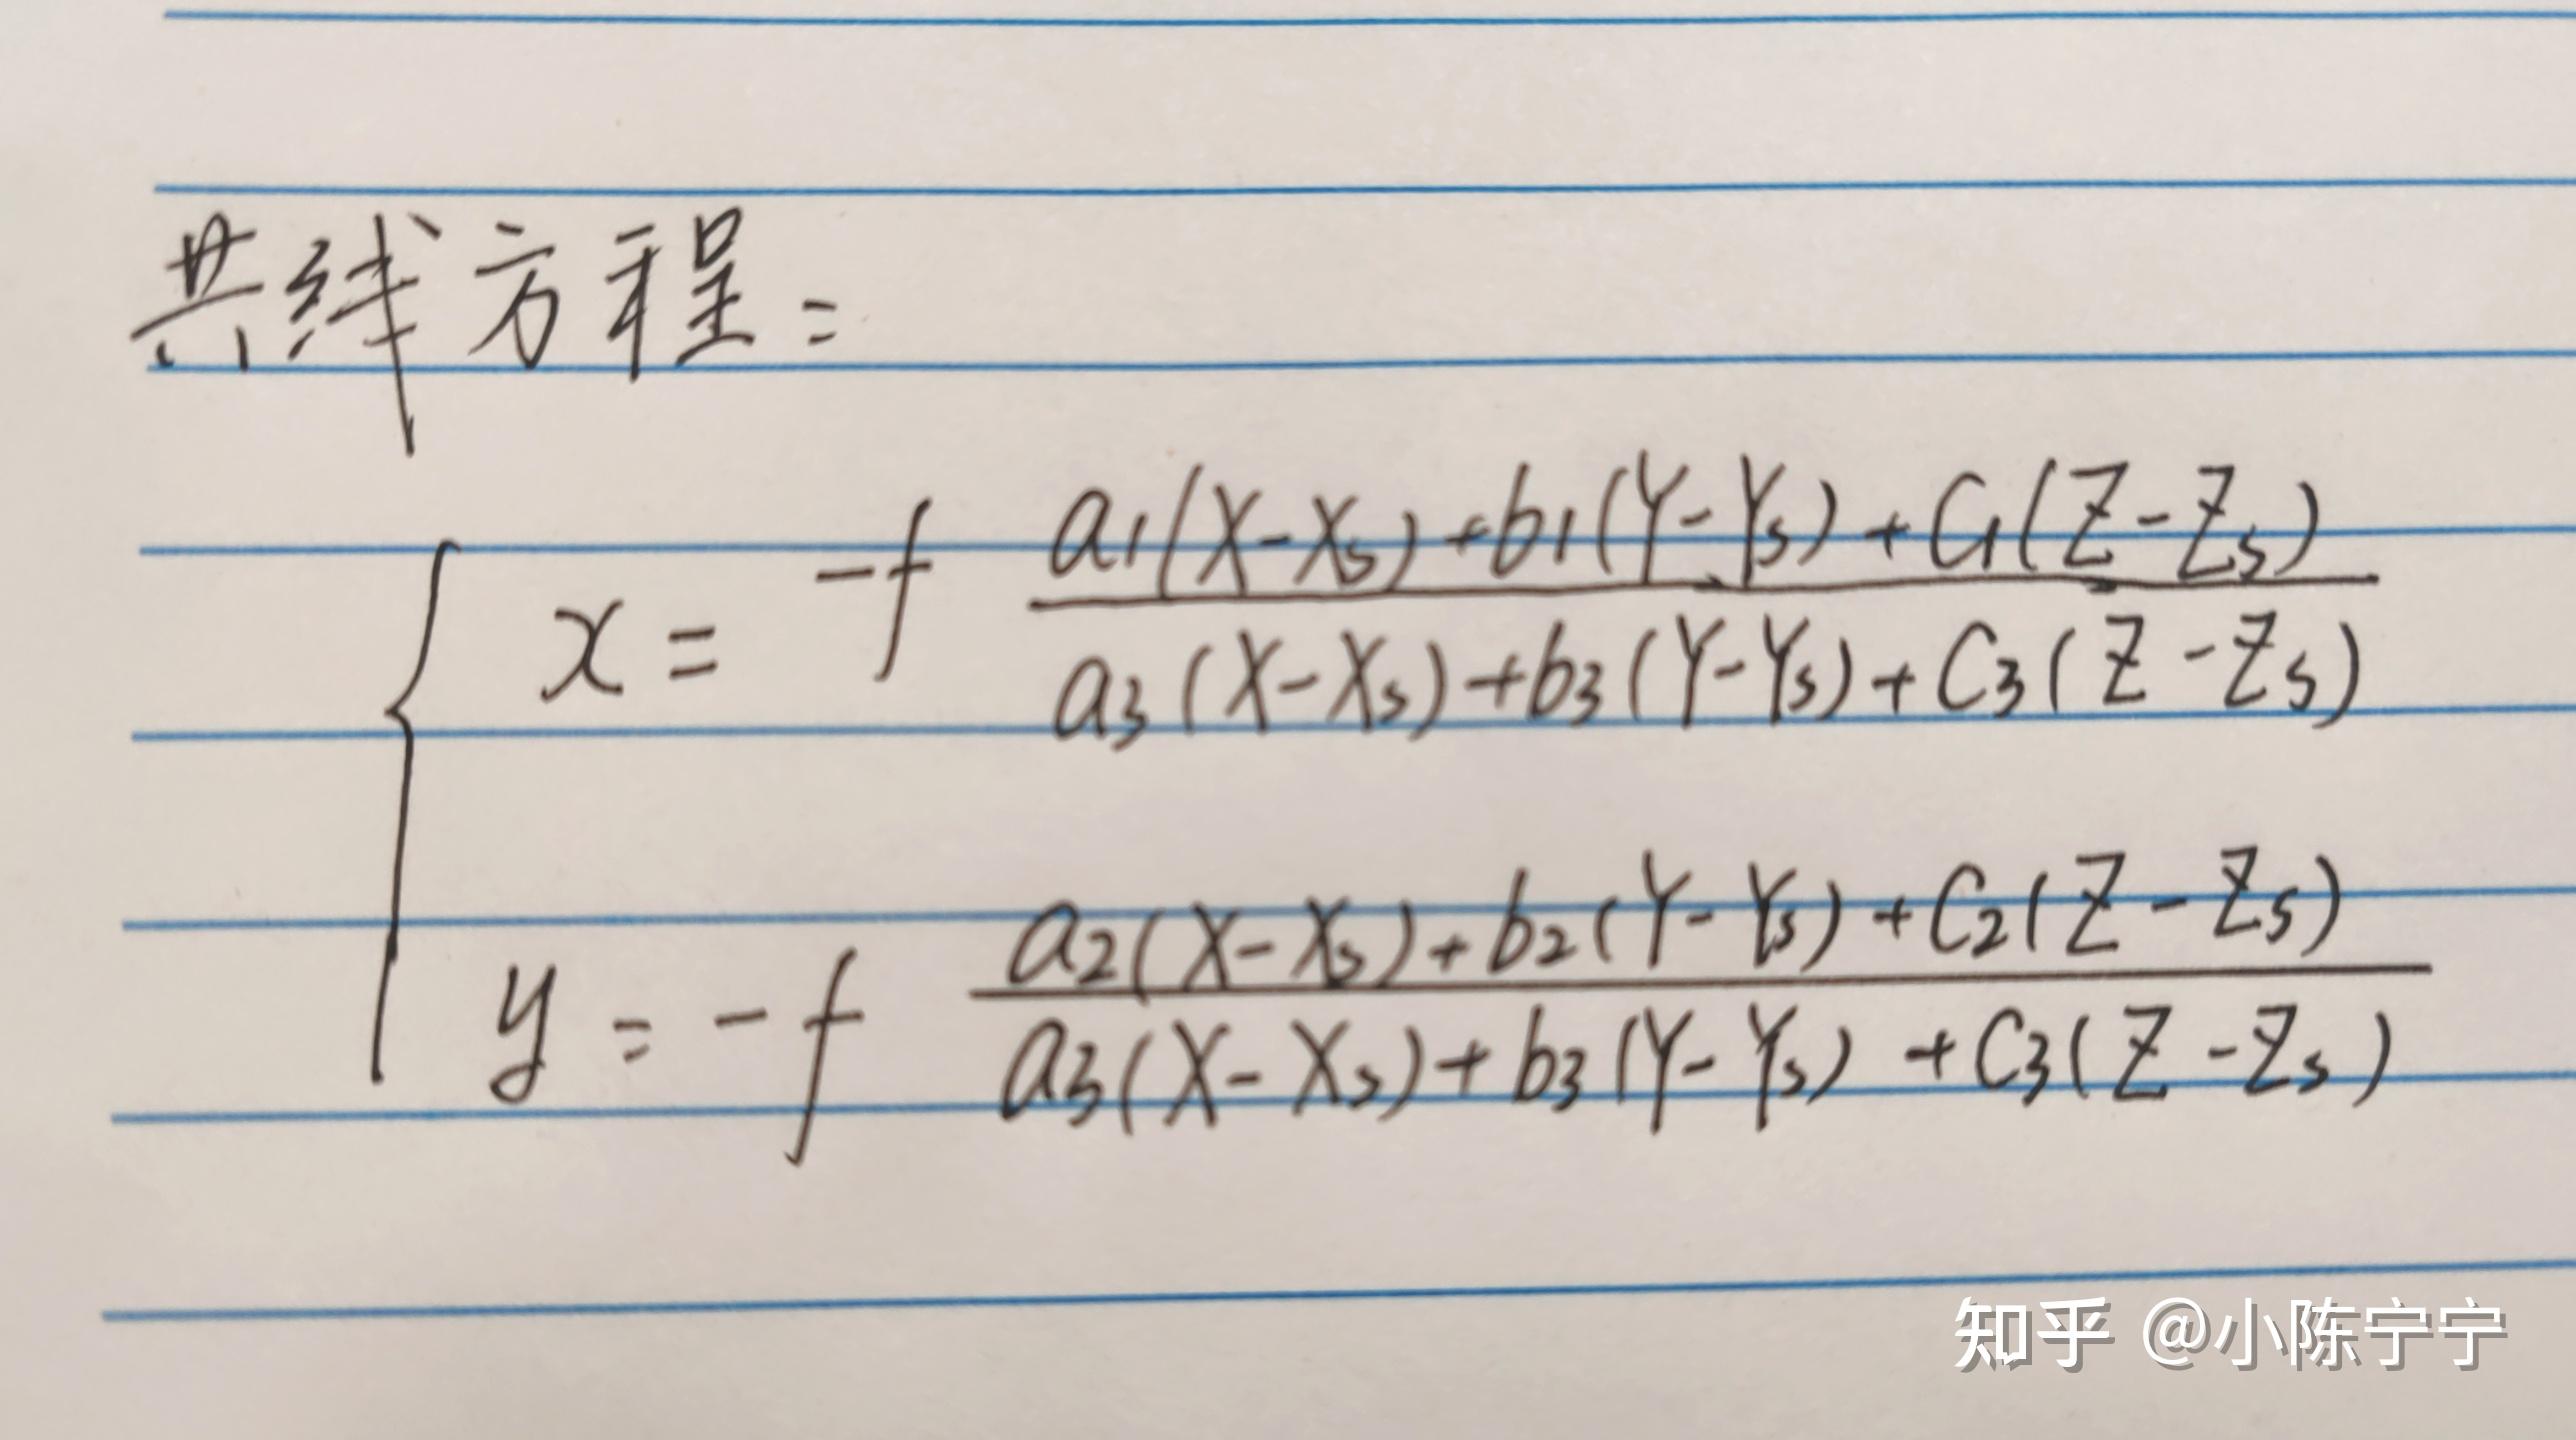 共线方程:
x = -f \frac{a_1(X-X_s)+b_1(Y-Y_s)+C_1(Z-Z_s)}{a_3(X-X_s)+b_3(Y-Y_s)+C_3(Z-Z_s)}
y = -f \frac{a_2(X-X_s)+b_2(Y-Y_s)+C_2(Z-Z_s)}{a_3(X-X_s)+b_3(Y-Y_s)+C_3(Z-Z_s)}
知乎 @小陈宁宁